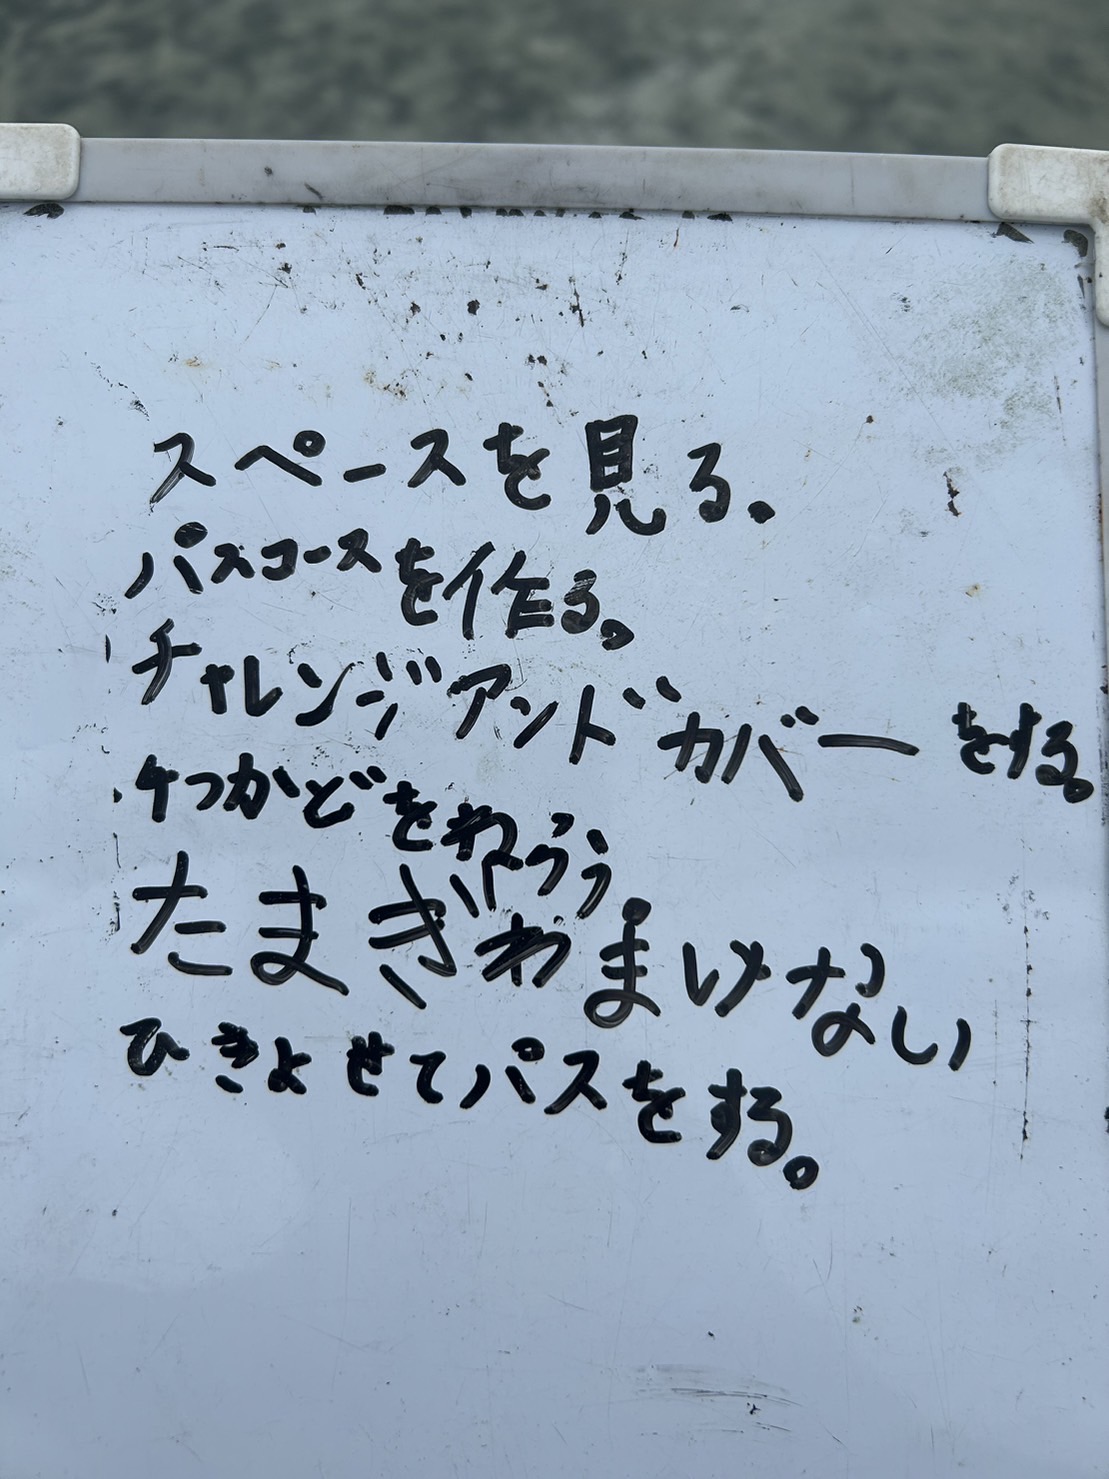 スペースを見る。
パスコースを作る。
チャレンジアンドカバーをする。
4つかどをねらう
たまぎわまけない
ひきよせてパスをする。